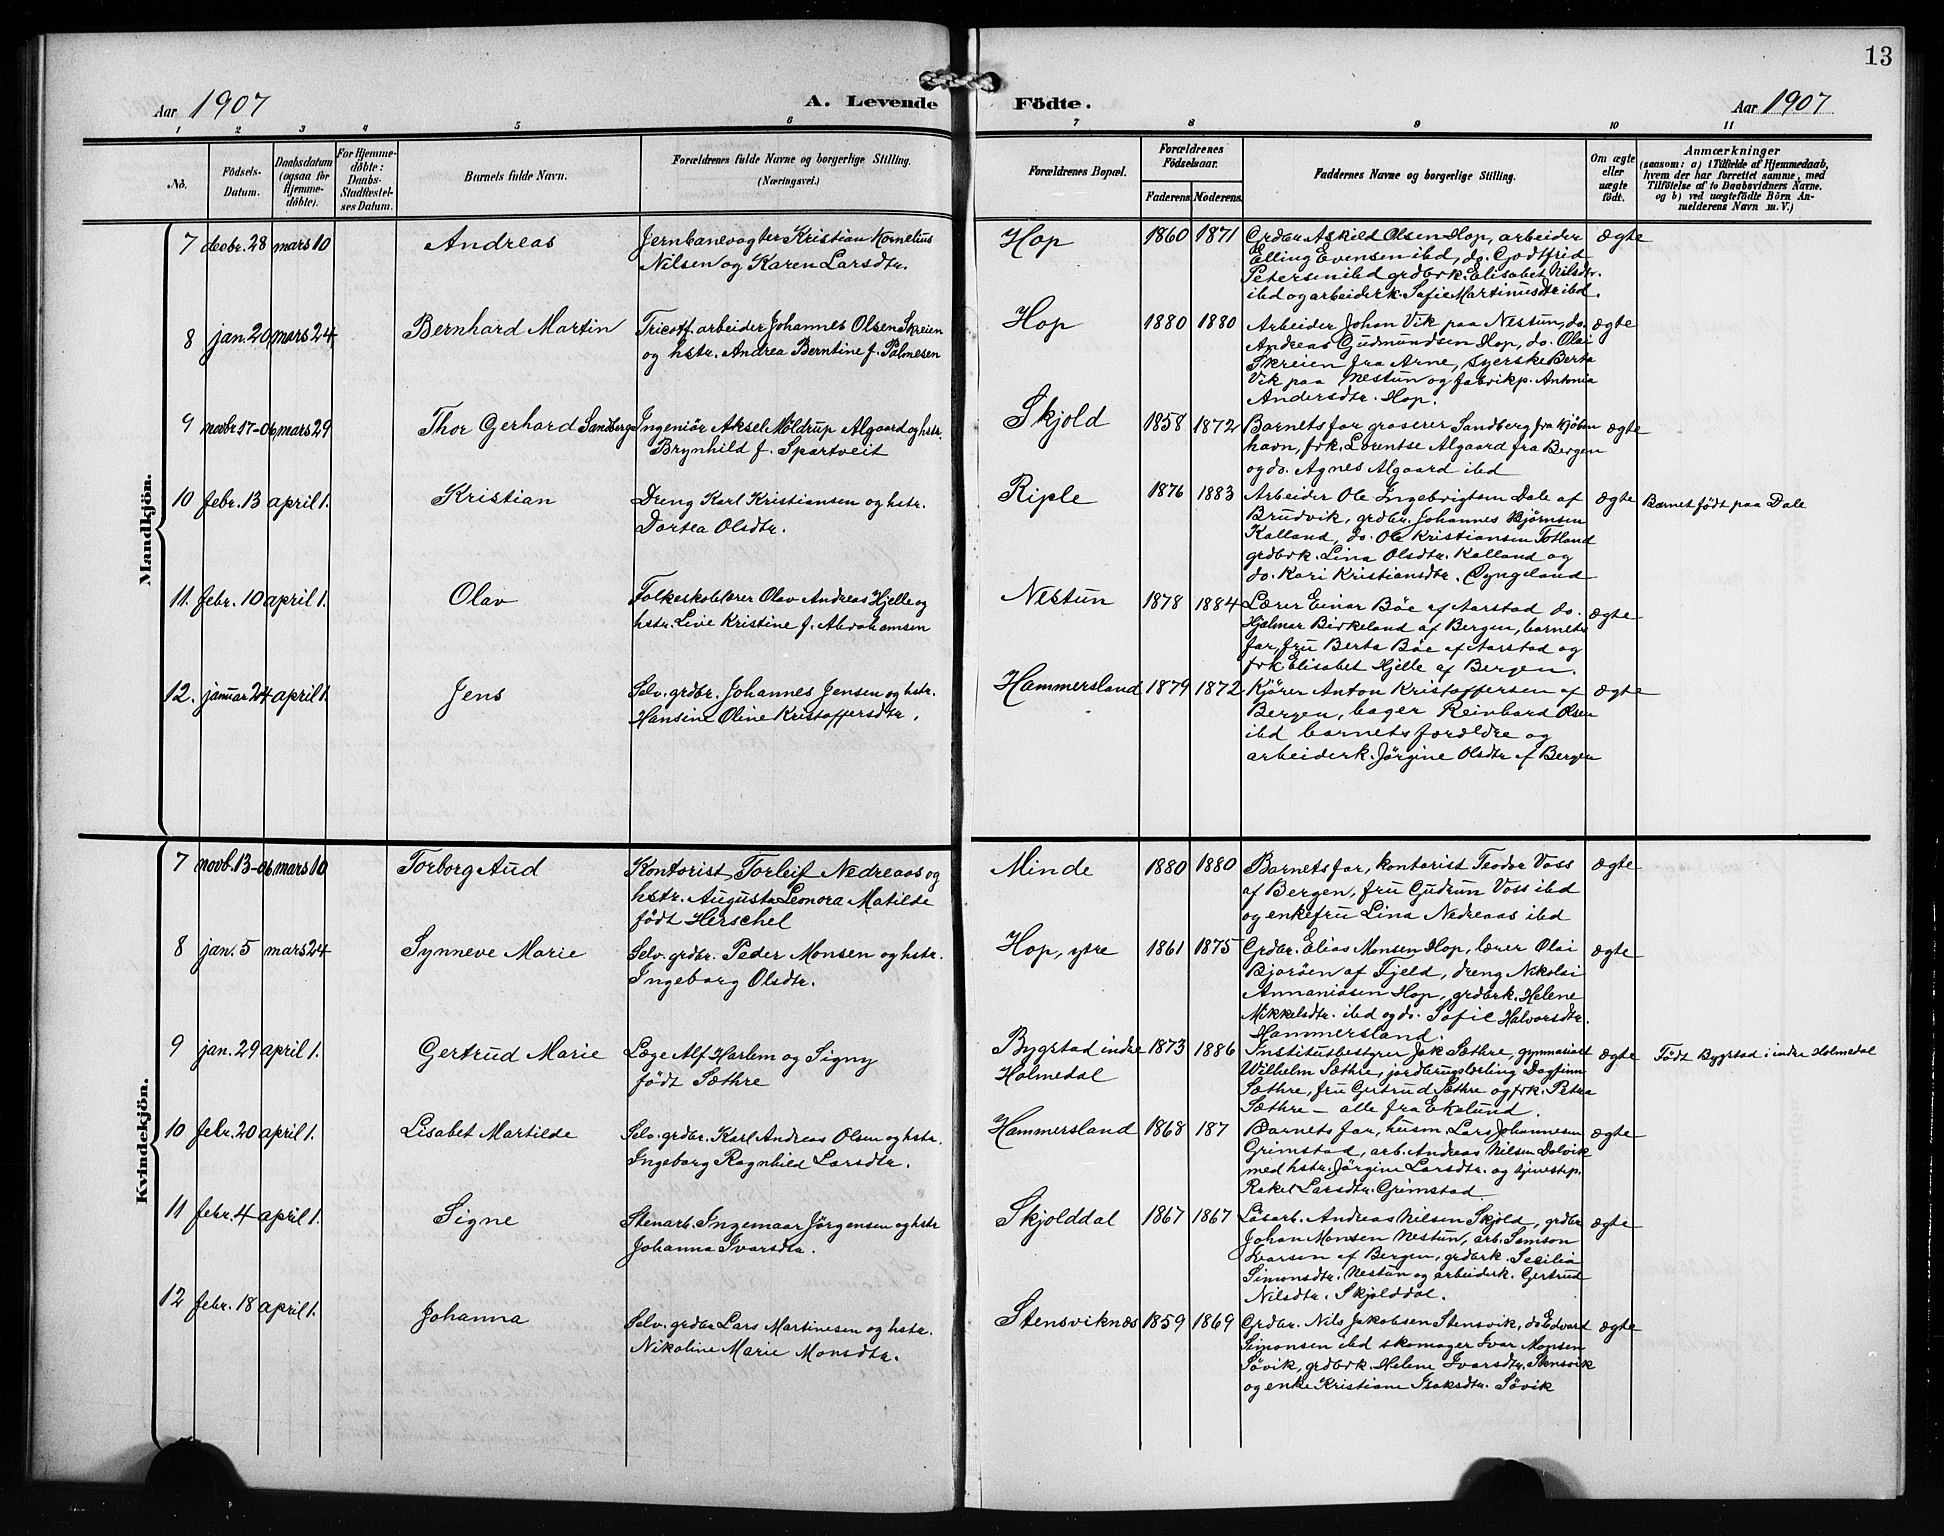 13
Aar 1907 A. Levende Födte. Aar 1907
1 2 3 4 5 6 7 8 9 10 11
No.
Födsels-Datum.
Daabsdatum (ogsaa for Hjemme-döbte).
For Hjemme-döbte: Daabs-Stadfæstel-ses Datum.
Barnets fulde Navn.
Forældrenes fulde Navne og borgerlige Stilling.
(Næringsvei.)
Forældrenes Bopæl.
Forældrenes Födselsaar.
Faderens Moderens
Faddernes Navne og borgerlige Stilling.
Om ægte eller uægte födt.
Anmærkninger
(saasom: a) i Tilfælde af Hjemmedaab,
hvem der har forrettet samme, med
Tilföielse af to Daabsvidners Navne.
og b) ved uægtefödte Börn An-
melderens Navn m. V.)
Mandkjön.
7 decbr. 28 mars 10 Andreas
Jernbanevogter Kristian Kornelius
Nilsen og Karen Larsdtr.
Hop 1860 1871
Grdbr. Askild Olsen Hop, arbeider
Elling Evensen ibd, do. Godtfrid
Petersen ibd grdbrk. Elisabet Nilsdtr.
ibd og arbeiderk. Sofie Martinusdtr ibd.
ægte
8 jan. 20 mars 24 Bernhard Martin
Tricotf. arbeider Johannes Olsen Skreien
og hstr. Andrea Berntine f. Palmesen
Hop 1880 1880
Arbeider Johan Vik paa Nestun, do.
Andreas Gudmundsen Hop, do. Olai
Skreien fra Arne, syerske Berta
Vik paa Nestun og fabrikp. Antonia
Andersdtr. Hop.
ægte
9 novbr. 17-06 mars 29 Thor Gerhard Sandberg
Ingeniör Aksel Möldrup Algaard og hstr.
Brynhild f. Spartveit
Skjold 1858 1872
Barnets far groserer Sandberg fra Kjöben
havn, frk. Lorentse Algaard fra Bergen
og do. Agnes Algaard ibd
ægte
10 febr. 13 april 1. Kristian
Dreng Karl Kristiansen og hstr.
Dortea Olsdtr.
Riple 1876 1883
Arbeider Ole Ingebrigtsen Dale af
Brudvik, grdbr. Johannes Bjørnsen
Kalland, do. Ole Kristiansen Totland
grdbrk. Lina Olsdtr. Kalland og
do. Kari Kristiansdtr. Øyngeland
ægte
Barnet födt paa Dale
11. febr. 10 april 1. Olav
Folkeskolelærer Olav Andreas Hjelle og
hstr. Live Kristine f. Abrahamsen
Nestun 1878 1884
Lærer Einar Böe af Aarstad do.
Hjalmar Birkeland af Bergen, barnets
far, fru Berta Böe af Aarstad og
frk Elisabet Hjelle af Bergen.
ægte
12. januar 24 april 1. Jens
Selv. grdbr. Johannes Jensen og hstr.
Hansine Oline Kristoffersdtr.
Hammersland 1879 1872
Kjörer Anton Kristoffersen af
Bergen, bager Reinhard Olsen
ibd barnets forældre og
arbeiderk. Jörgine Olsdtr af Bergen
ægte
Kvindekjön.
7 novb. 13-06 mars 10 Torborg Aud
Kontorist Torleif Nedreaas og
hstr. Augusta Leonora Matilde
födt Herschel
Minde 1880 1880
Barnets far, kontorist Teodor Voss
af Bergen, fru Gudrun Voss ibd
og enkefru Lina Nedreaas ibd
ægte
8 jan. 5 mars 24 Synneve Marie
Selv. grdbr. Peder Monsen og hstr.
Ingeborg Olsdtr.
Hop, ytre 1861 1875
Grdbr. Elias Monsen Hop, lærer Olai
Bjoröen af Fjeld, dreng Nikolai
Annaniasen Hop, grdbrk. Helene
Mikkelsdtr. ibd og do. Sofie Halvorsdtr.
Hammersland.
ægte
9 jan. 29 april 1. Gertrud Marie
Læge Alf Harlem og Signy
födt Sæthre
Bygstad indre
Holmedal
1873 1886
Institutbestyrer Jak. Sæthre, gymnasiast
Wilhelm Sæthre, jordbrugslærling Dagfinn
Sæthre, fru Gertrud Sæthre og frk. Petra
Sæthre – alle fra Ekelund.
ægte
Födt Bygstad i indre Holmedal
10 febr. 20 april 1. Lisabet Martilde
Selv. grdbr. Karl Andreas Olsen og hstr.
Ingeborg Ragnhild Larsdtr.
Hammersland 1868 187
Barnets far, husm. Lars Johannesen
Grimstad, arb. Andreas Nilsen Dalvik
med hstr. Jörgine Larsdtr. og tjenestep.
Rakel Larsdtr. Grimstad
ægte
11 febr. 4 april 1. Signe
Stenarb. Ingemaar Jörgensen og hstr
Johanna Ivarsdtr.
Skjolddal 1867 1867
Lösarb. Andreas Nilsen Skjold, grdbr
Johan Monsen Nestun, arb. Samson
Ivarsen af Bergen, grdbrk. Secilia
Simonsdtr. Nestun og arbeiderk. Gertrud
Nilsdtr. Skjolddal.
ægte
12 febr. 18 april 1. Johanna
Selv. grdbr Lars Martinesen og hstr.
Nikoline Marie Monsdtr.
Stensviknæs 1859 1869
Grdbr. Nils Jakobsen Stensvik, do Edvard
Simonsen ibd skomager Ivar Monsen
Søvik, grdbrk. Helene Ivarsdtr. Stensvik
og enke Kristiane Isaksdtr. Søvik
ægte